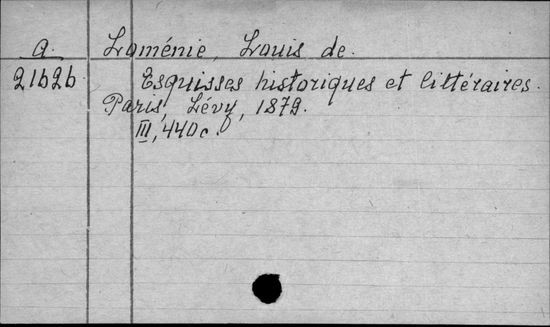 a Loménie, Louis de.
21626 Esquisses historiques et littéraires.
Paris, Lévy, 1879.
III, 440 c.